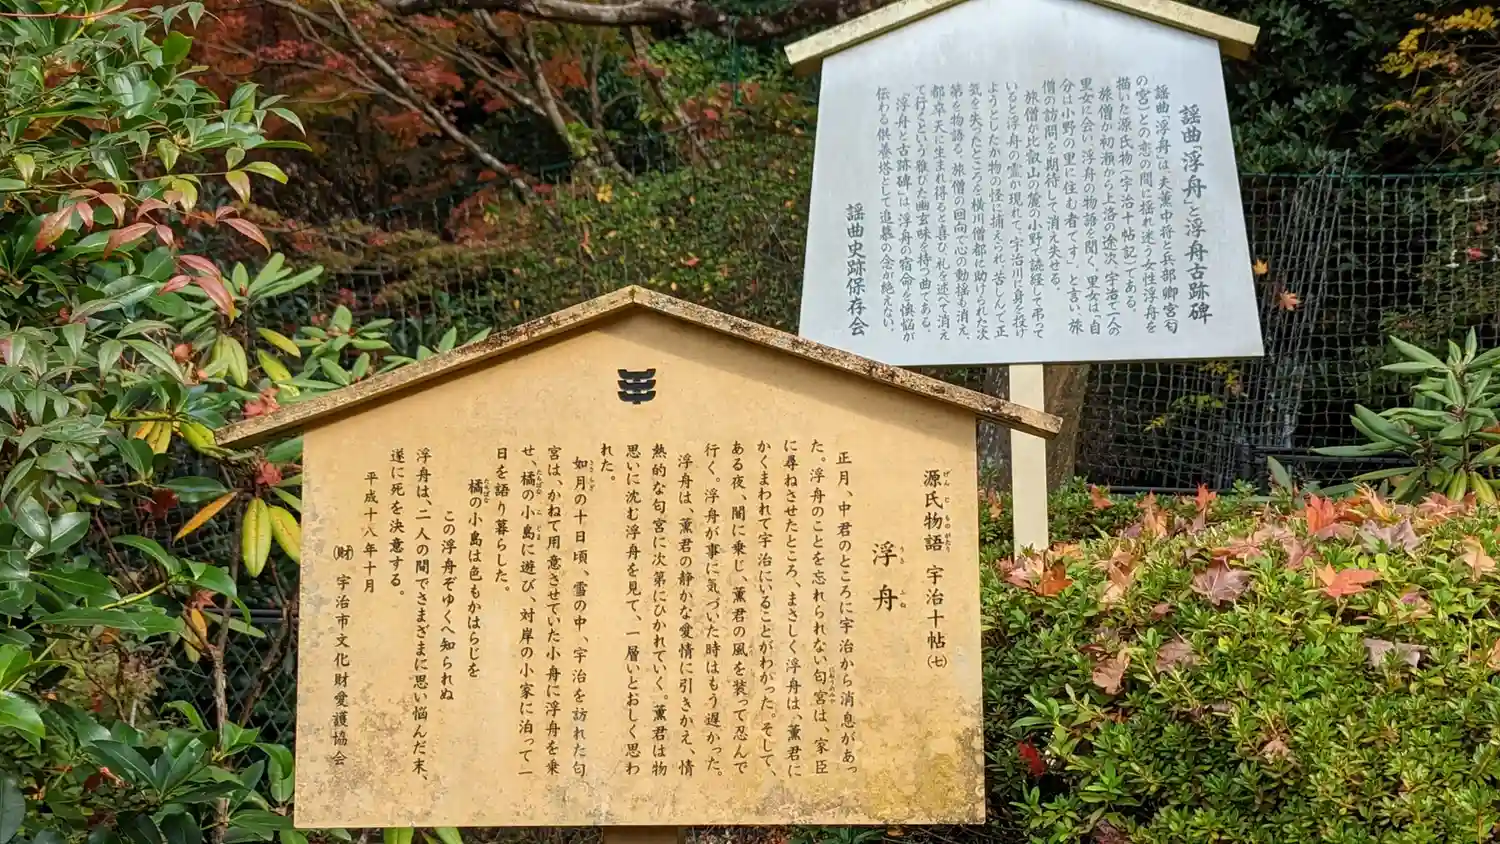 謡曲「浮舟」と浮舟古跡碑
謡曲「浮舟」は、夫薫中将と兵部卿宮匂
の宮）との恋の間に揺れ迷う女性浮舟を
描いた源氏物（宇治十帖記）である
旅僧が初瀬から上洛の途次、宇治で一人の
里女に会い、浮舟の物語を聞く。里女は、自
分は小野の里に住む者です」と言い、旅
僧の訪問を期待して消え失せる。
旅僧が比叡山の麓の小野で読経して弔って
いると浮舟の霊が現れて、宇治川に身を投げ
ようとしたが物の怪に捕えられ、苦しんで正
気を失ったところを横川僧都に助けられた次
第を物語る。旅僧の回向で心の動揺も消え、
都卒天に生まれ得ると喜び、礼を述べて消え
て行くという雅びな幽玄味を持つ曲である。
「浮舟と古跡碑」は浮舟の宿命を懊悩が
伝わる供養塔として追慕の念が絶えない。
謡曲史跡保存会
源氏物語 宇治十帖（七）
げん じ ものがたり
浮舟
うき ふね
正月、中君のところに宇治から消息があっ
た。浮舟のことを忘れられない匂宮は、家臣
に尋ねさせたところ、まさしく浮舟は、薫君に
かくまわれて宇治にいることがわかった。そして、
ある夜、闇に乗じ、薫君の風を装って忍んで
行く。浮舟が事に気づいた時はもう遅かった。
浮舟は、薫君の静かな愛情に引きかえ、情
熱的な匂宮に次第にひかれていく。薫君は物
思いに沈む浮舟を見て、一層いとおしく思わ
れた。
如月の十日頃、雪の中、宇治を訪れた匂
宮は、かねて用意させていた小舟に浮舟を乗
せ、橘の小島に遊び、対岸の小家に泊って一
日を語り暮らした。
橘の小島は色もかはらじを
この浮舟ぞゆくへ知られぬ
浮舟は、二人の間でさまざまに思い悩んだ末、
遂に死を決意する。
平成十八年十月
（財）宇治市文化財愛護協会